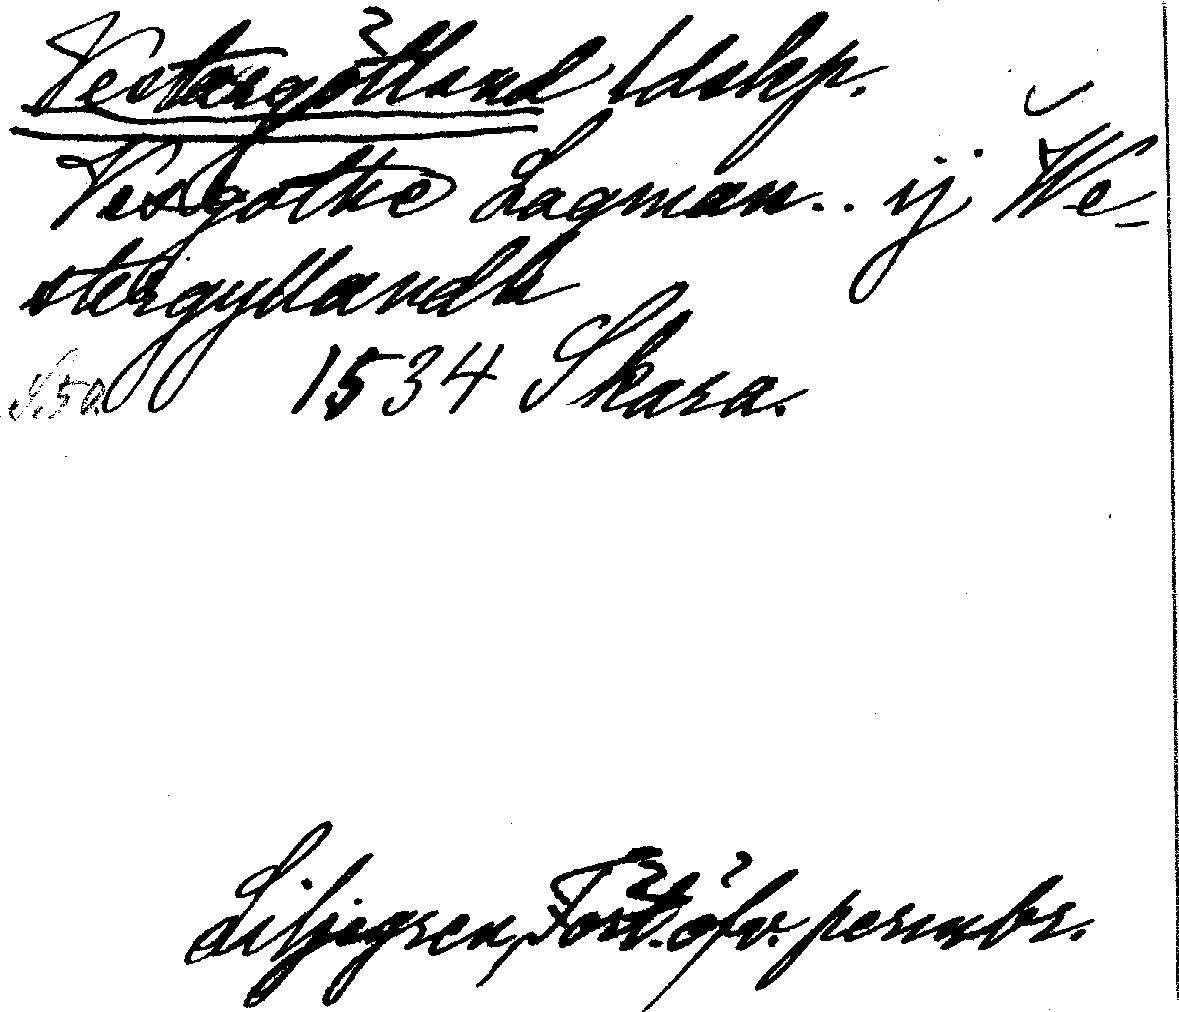 Vestergötland ldskp.
Vesgöthe Lagman.. ij We-
stergyllandh
S. 50 1534 Skara.
Liljegren, Fört. öfv. permbr.